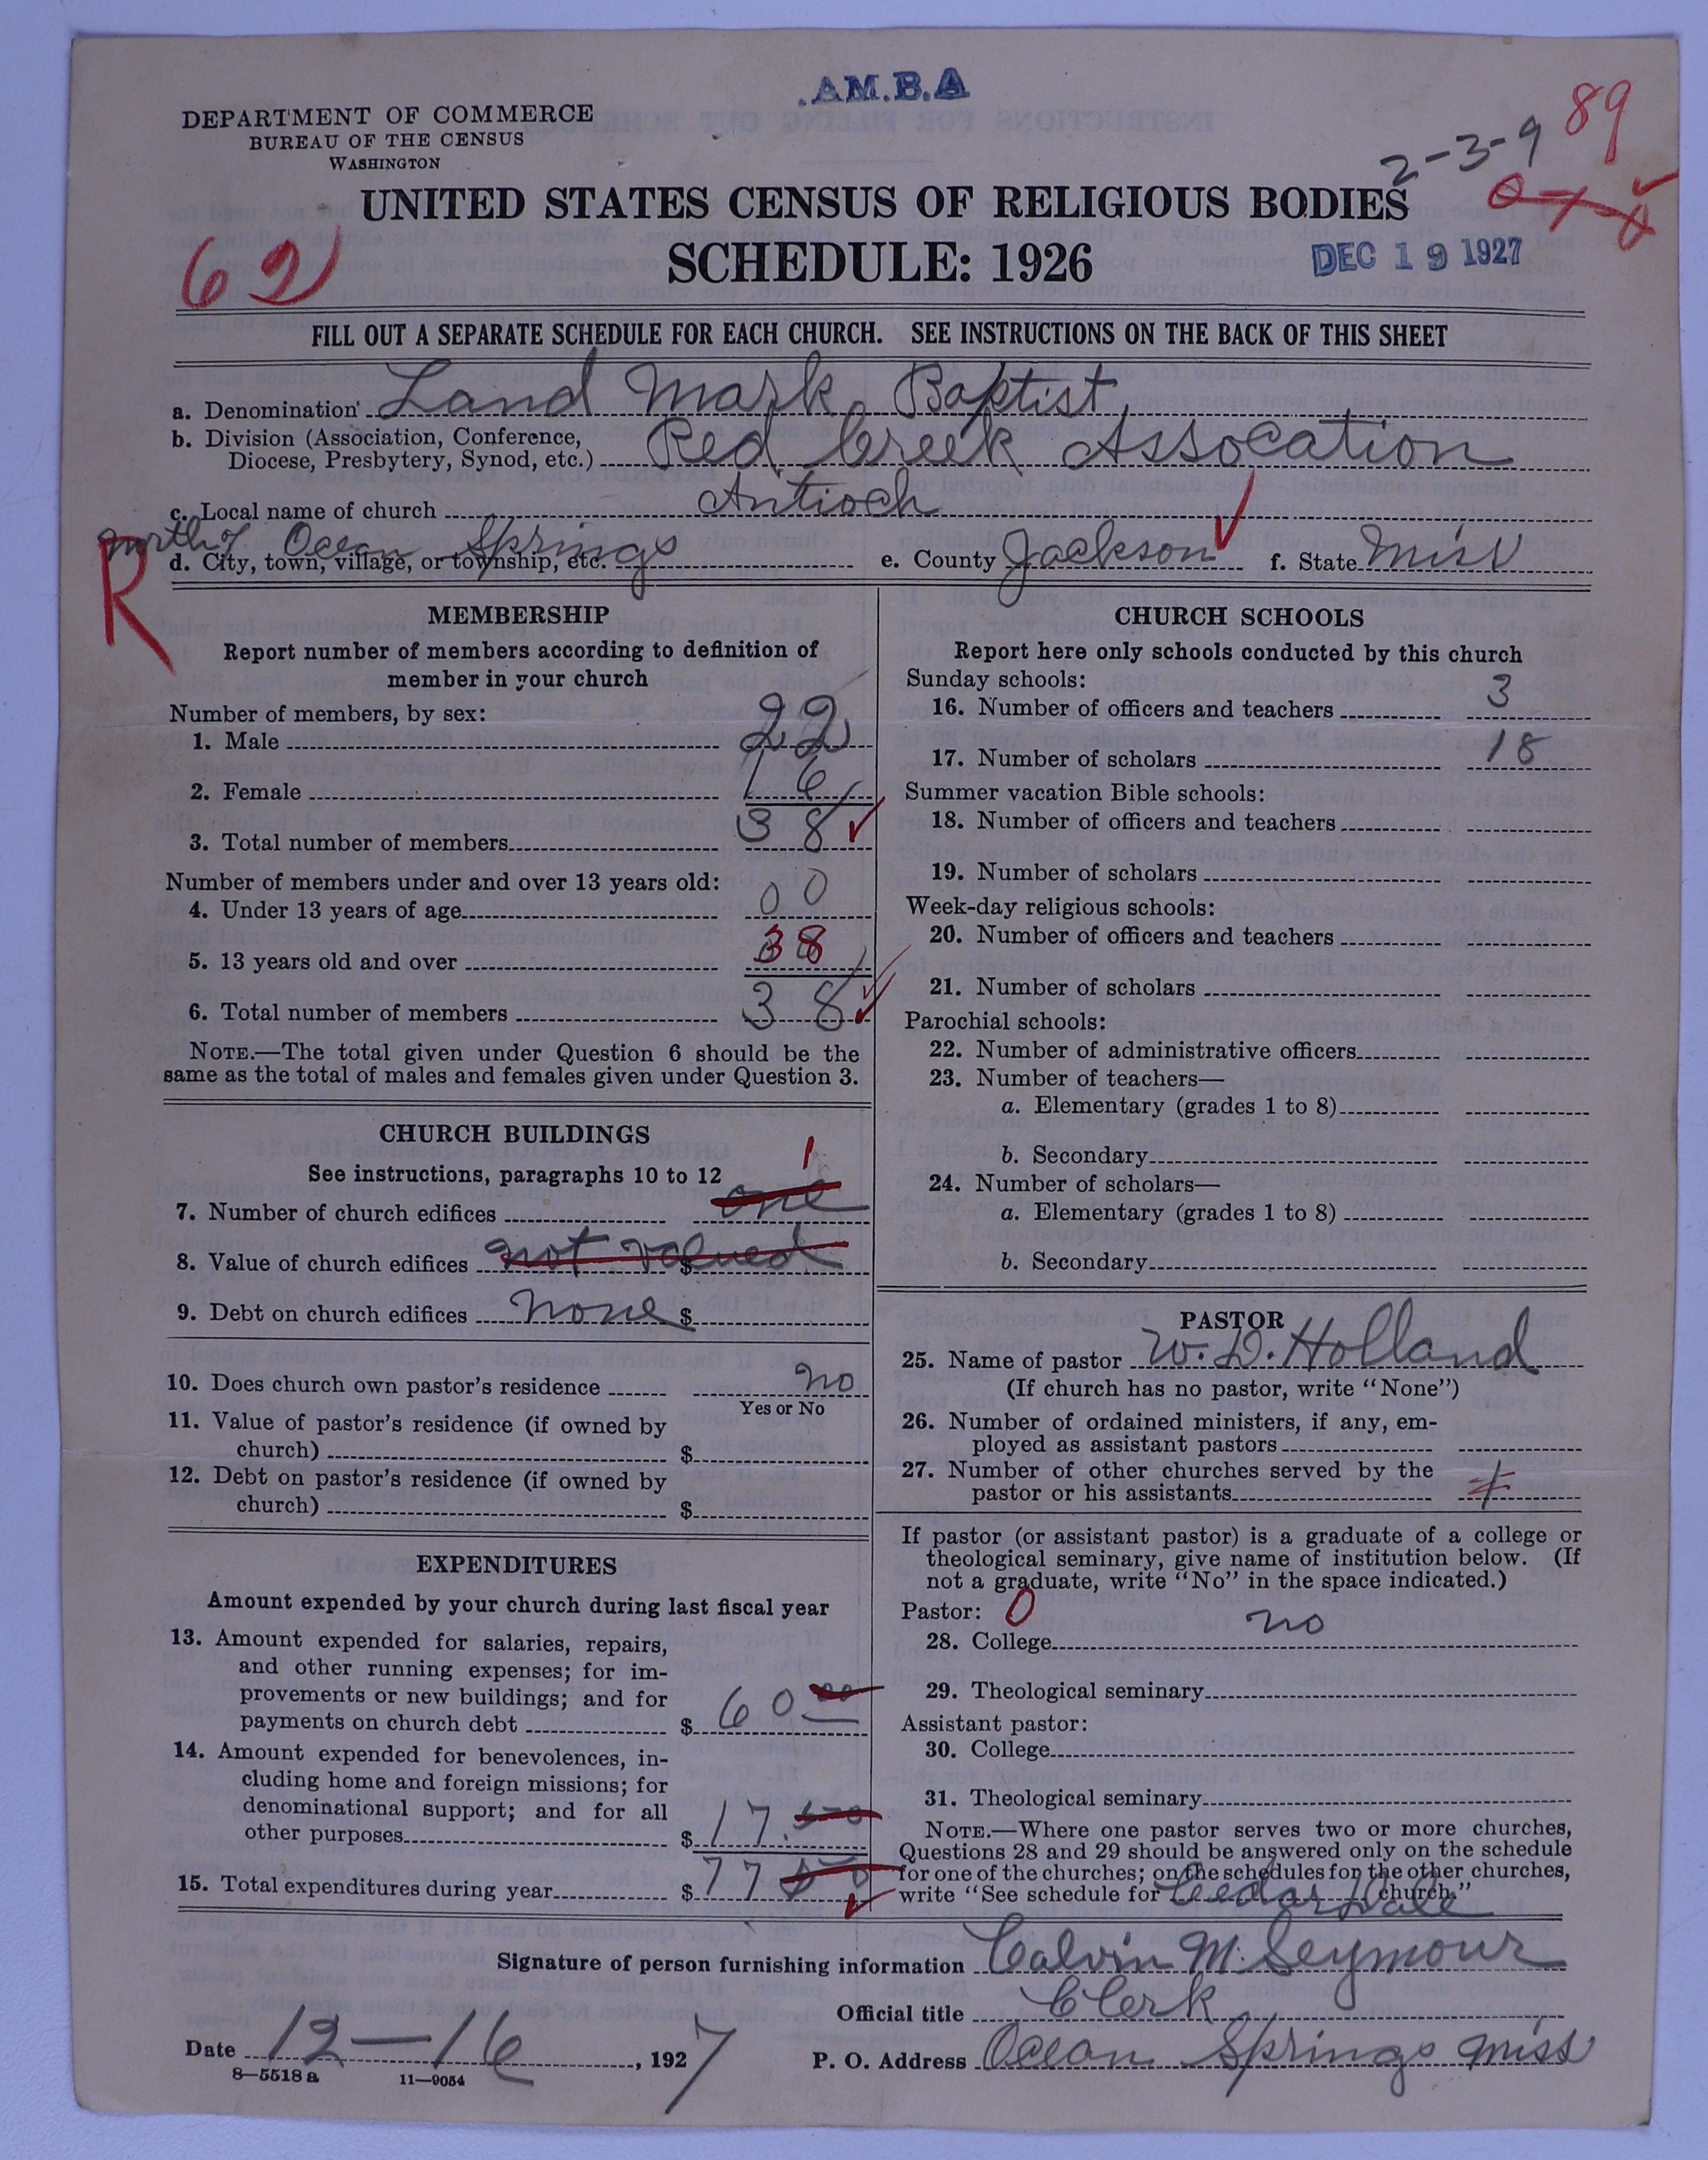 .AM.B.A
DEPARTMENT OF COMMERCE
BUREAU OF THE CENSUS
WASHINGTON
89
2-3-9
UNITED STATES CENSUS OF RELIGIOUS BODIES
SCHEDULE: 1926
DEC 19 1927
FILL OUT A SEPARATE SCHEDULE FOR EACH CHURCH. SEE INSTRUCTIONS ON THE BACK OF THIS SHEET
a. Denomination Land Mark Baptist
b. Division (Association, Conference,
Diocese, Presbytery, Synod, etc.) Red Creek Assocation
c. Local name of church Antioch
north of Ocean Springs
d. City, town, village, or township, etc. e. County Jackson f. State Miss
R
MEMBERSHIP
Report number of members according to definition of
member in your church
Number of members, by sex:
1. Male 22
2. Female 16
3. Total number of members 38
Number of members under and over 13 years old:
4. Under 13 years of age 00
5. 13 years old and over 38
6. Total number of members 38
NOTE.—The total given under Question 6 should be the
same as the total of males and females given under Question 3.
CHURCH BUILDINGS
See instructions, paragraphs 10 to 12
1
7. Number of church edifices one
8. Value of church edifices not valued $
9. Debt on church edifices none $
10. Does church own pastor's residence no
Yes or No
11. Value of pastor's residence (if owned by
church) $
12. Debt on pastor's residence (if owned by
church) $
EXPENDITURES
Amount expended by your church during last fiscal year
13. Amount expended for salaries, repairs,
and other running expenses; for im-
provements or new buildings; and for
payments on church debt $ 60 00
14. Amount expended for benevolences, in-
cluding home and foreign missions; for
denominational support; and for all
other purposes $ 17.50
15. Total expenditures during year $ 77 50
CHURCH SCHOOLS
Report here only schools conducted by this church
Sunday schools:
16. Number of officers and teachers 3
17. Number of scholars 18
Summer vacation Bible schools:
18. Number of officers and teachers
19. Number of scholars
Week-day religious schools:
20. Number of officers and teachers
21. Number of scholars
Parochial schools:
22. Number of administrative officers
23. Number of teachers—
a. Elementary (grades 1 to 8)
b. Secondary
24. Number of scholars—
a. Elementary (grades 1 to 8)
b. Secondary
PASTOR
25. Name of pastor W. D. Holland
(If church has no pastor, write "None")
26. Number of ordained ministers, if any, em-
ployed as assistant pastors
27. Number of other churches served by the
pastor or his assistants
If pastor (or assistant pastor) is a graduate of a college or
theological seminary, give name of institution below. (If
not a graduate, write "No" in the space indicated.)
Pastor: 0
28. College no
29. Theological seminary
Assistant pastor:
30. College
31. Theological seminary
NOTE.—Where one pastor serves two or more churches,
Questions 28 and 29 should be answered only on the schedule
for one of the churches; on the schedules for the other churches,
write "See schedule for Cedar Dale church."
Signature of person furnishing information Calvin M. Seymour
Official title Clerk
Date 12-16, 1927 P. O. Address Ocean Springs Miss
8—5518 a 11—9054